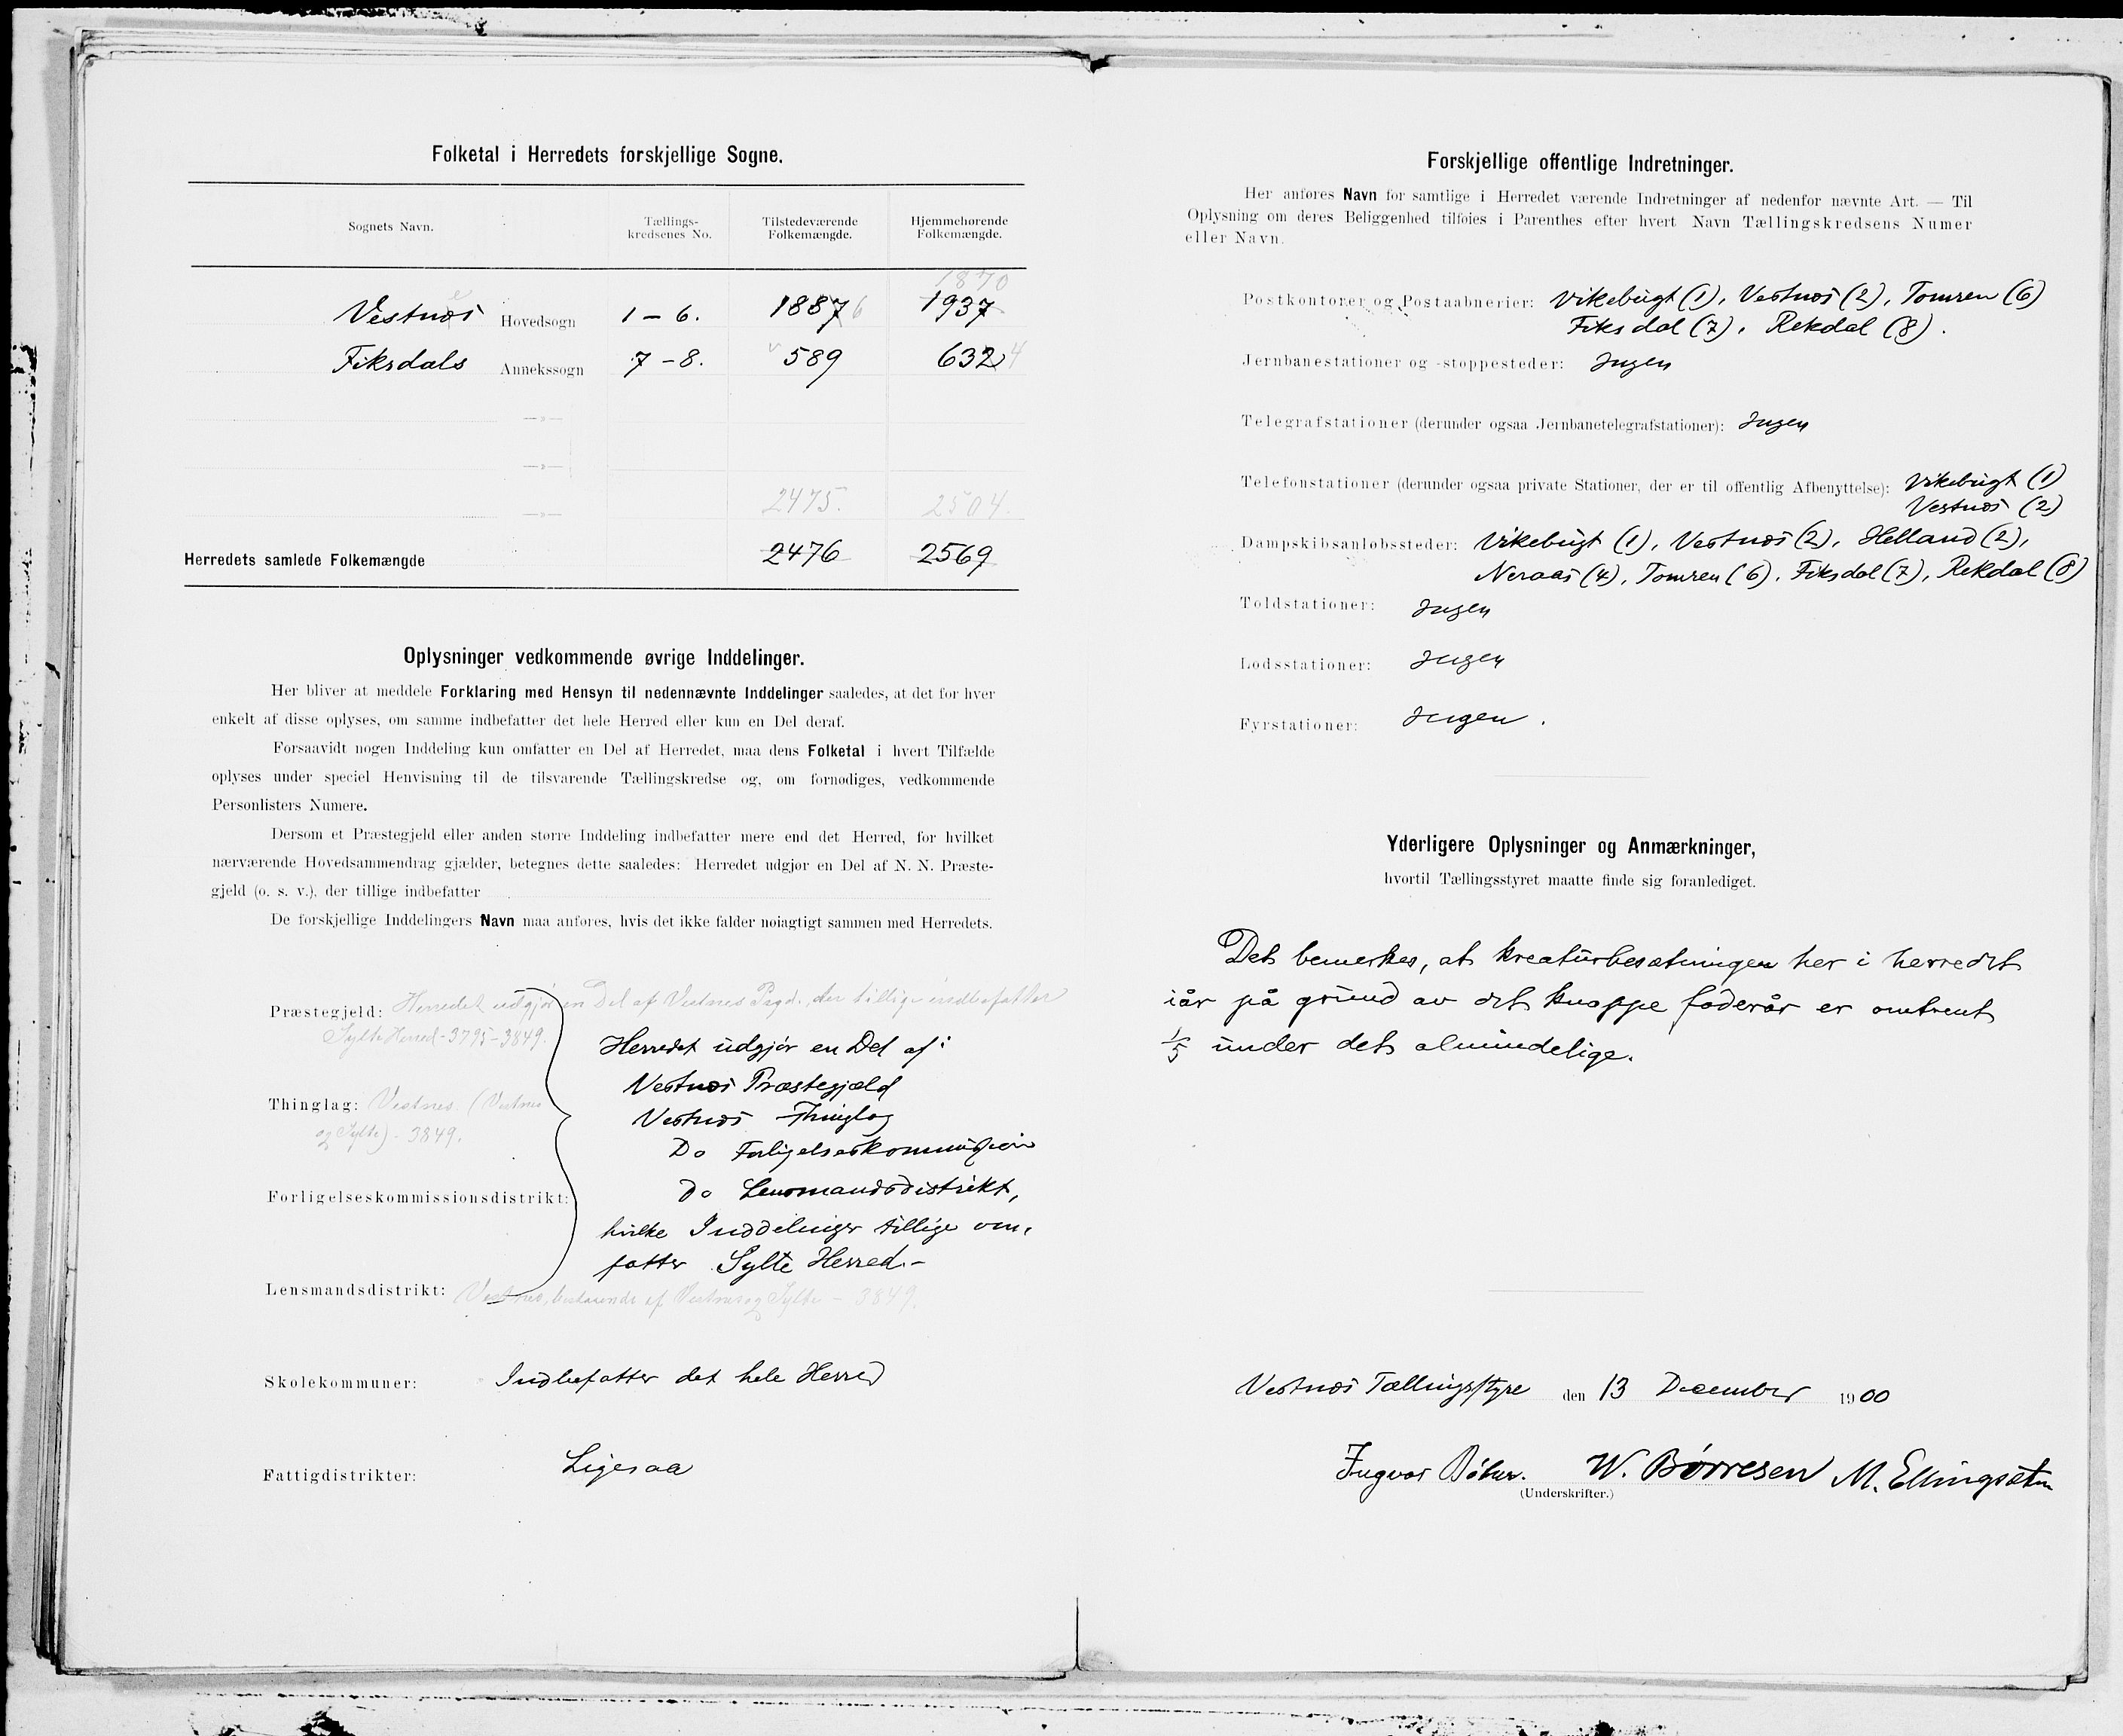 Folketal i Herredets forskjellige Sogne.
Sognets Navn.
Tællings-
kredsenes No.
Tilstedeværende
Folkemængde.
Hjemmehørende
Folkemængde.
1870
Vestnæs Hovedsogn 1 - 6. 1887 6 1937
Fiksdals Annekssogn 7 - 8. 589 632 4
—»—
—»—
—»— 2475. 2504.
Herredets samlede Folkemængde 2476 2569
Oplysninger vedkommende øvrige Inddelinger.
Her bliver at meddele Forklaring med Hensyn til nedennævnte Inddelinger saaledes, at det for hver
enkelt af disse oplyses, om samme indbefatter det hele Herred eller kun en Del deraf.
Forsaavidt nogen Inddeling kun omfatter en Del af Herredet, maa dens Folketal i hvert Tilfælde
oplyses under speciel Henvisning til de tilsvarende Tællingskredse og, om fornødiges, vedkommende
Personlisters Numere.
Dersom et Præstegjeld eller anden større Inddeling indbefatter mere end det Herred, for hvilket
nærværende Hovedsammendrag gjælder, betegnes dette saaledes: Herredet udgjør en Del af N. N. Præste-
gjeld (o. s. v.), der tillige indbefatter
De forskjellige Inddelingers Navn maa anføres, hvis det ikke falder nøiagtigt sammen med Herredets.
Præstegjeld: Herredet udgjør en Del af Vestnes Prgd., der tillige indbefatter
Sylte Herred - 3795 - 3849.
Herredet udgjør en Del af:
Vestnæs Præstegjæld
Thinglag: Vestnes (Vestnes
og Sylte) - 3849.
Vestnæs Thinglag
Do Forligelseskommission
Forligelseskommissionsdistrikt:
Do Lensmandsdistrikt,
hvilke Inddelinger tillige om-
fatter Sylte Herred.-
Lensmandsdistrikt: Vestnes, bestaaende af Vestnes og Sylte - 3849.
Skolekommuner: Indbefatter det hele Herred
Fattigdistrikter: Ligesaa
Forskjellige offentlige Indretninger.
Her anføres Navn for samtlige i Herredet værende Indretninger af nedenfor nævnte Art. — Til
Oplysning om deres Beliggenhed tilføies i Parenthes efter hvert Navn Tællingskredsens Numer
eller Navn.
Postkontorer og Postaabnerier: Vikebugt (1), Vestnæs (2), Tomren (6)
Fiksdal (7), Rekdal (8).
Jernbanestationer og -stoppesteder: Ingen
Telegrafstationer (derunder ogsaa Jernbanetelegrafstationer): Ingen
Telefonstationer (derunder ogsaa private Stationer, der er til offentlig Afbenyttelse): Vikebugt (1)
Vestnæs (2)
Dampskibsanløbssteder: Vikebugt (1), Vestnæs (2), Helland (2),
Neraas (4), Tomren (6), Fiksdal (7), Rekdal (8)
Toldstationer: Ingen
Lodsstationer: Ingen
Fyrstationer: Ingen.
Yderligere Oplysninger og Anmærkninger,
hvortil Tællingsstyret maatte finde sig foranlediget.
Det bemerkes, at kreaturbesætningen her i herredet
iår på grund av det knappe foderår er omtrent
1/5 under det almindelige.
Vestnæs Tællingsstyre den 13 December 1900
Ingvar Bøhn. W. Børresen M. Ellingsæter
(Underskrifter.)